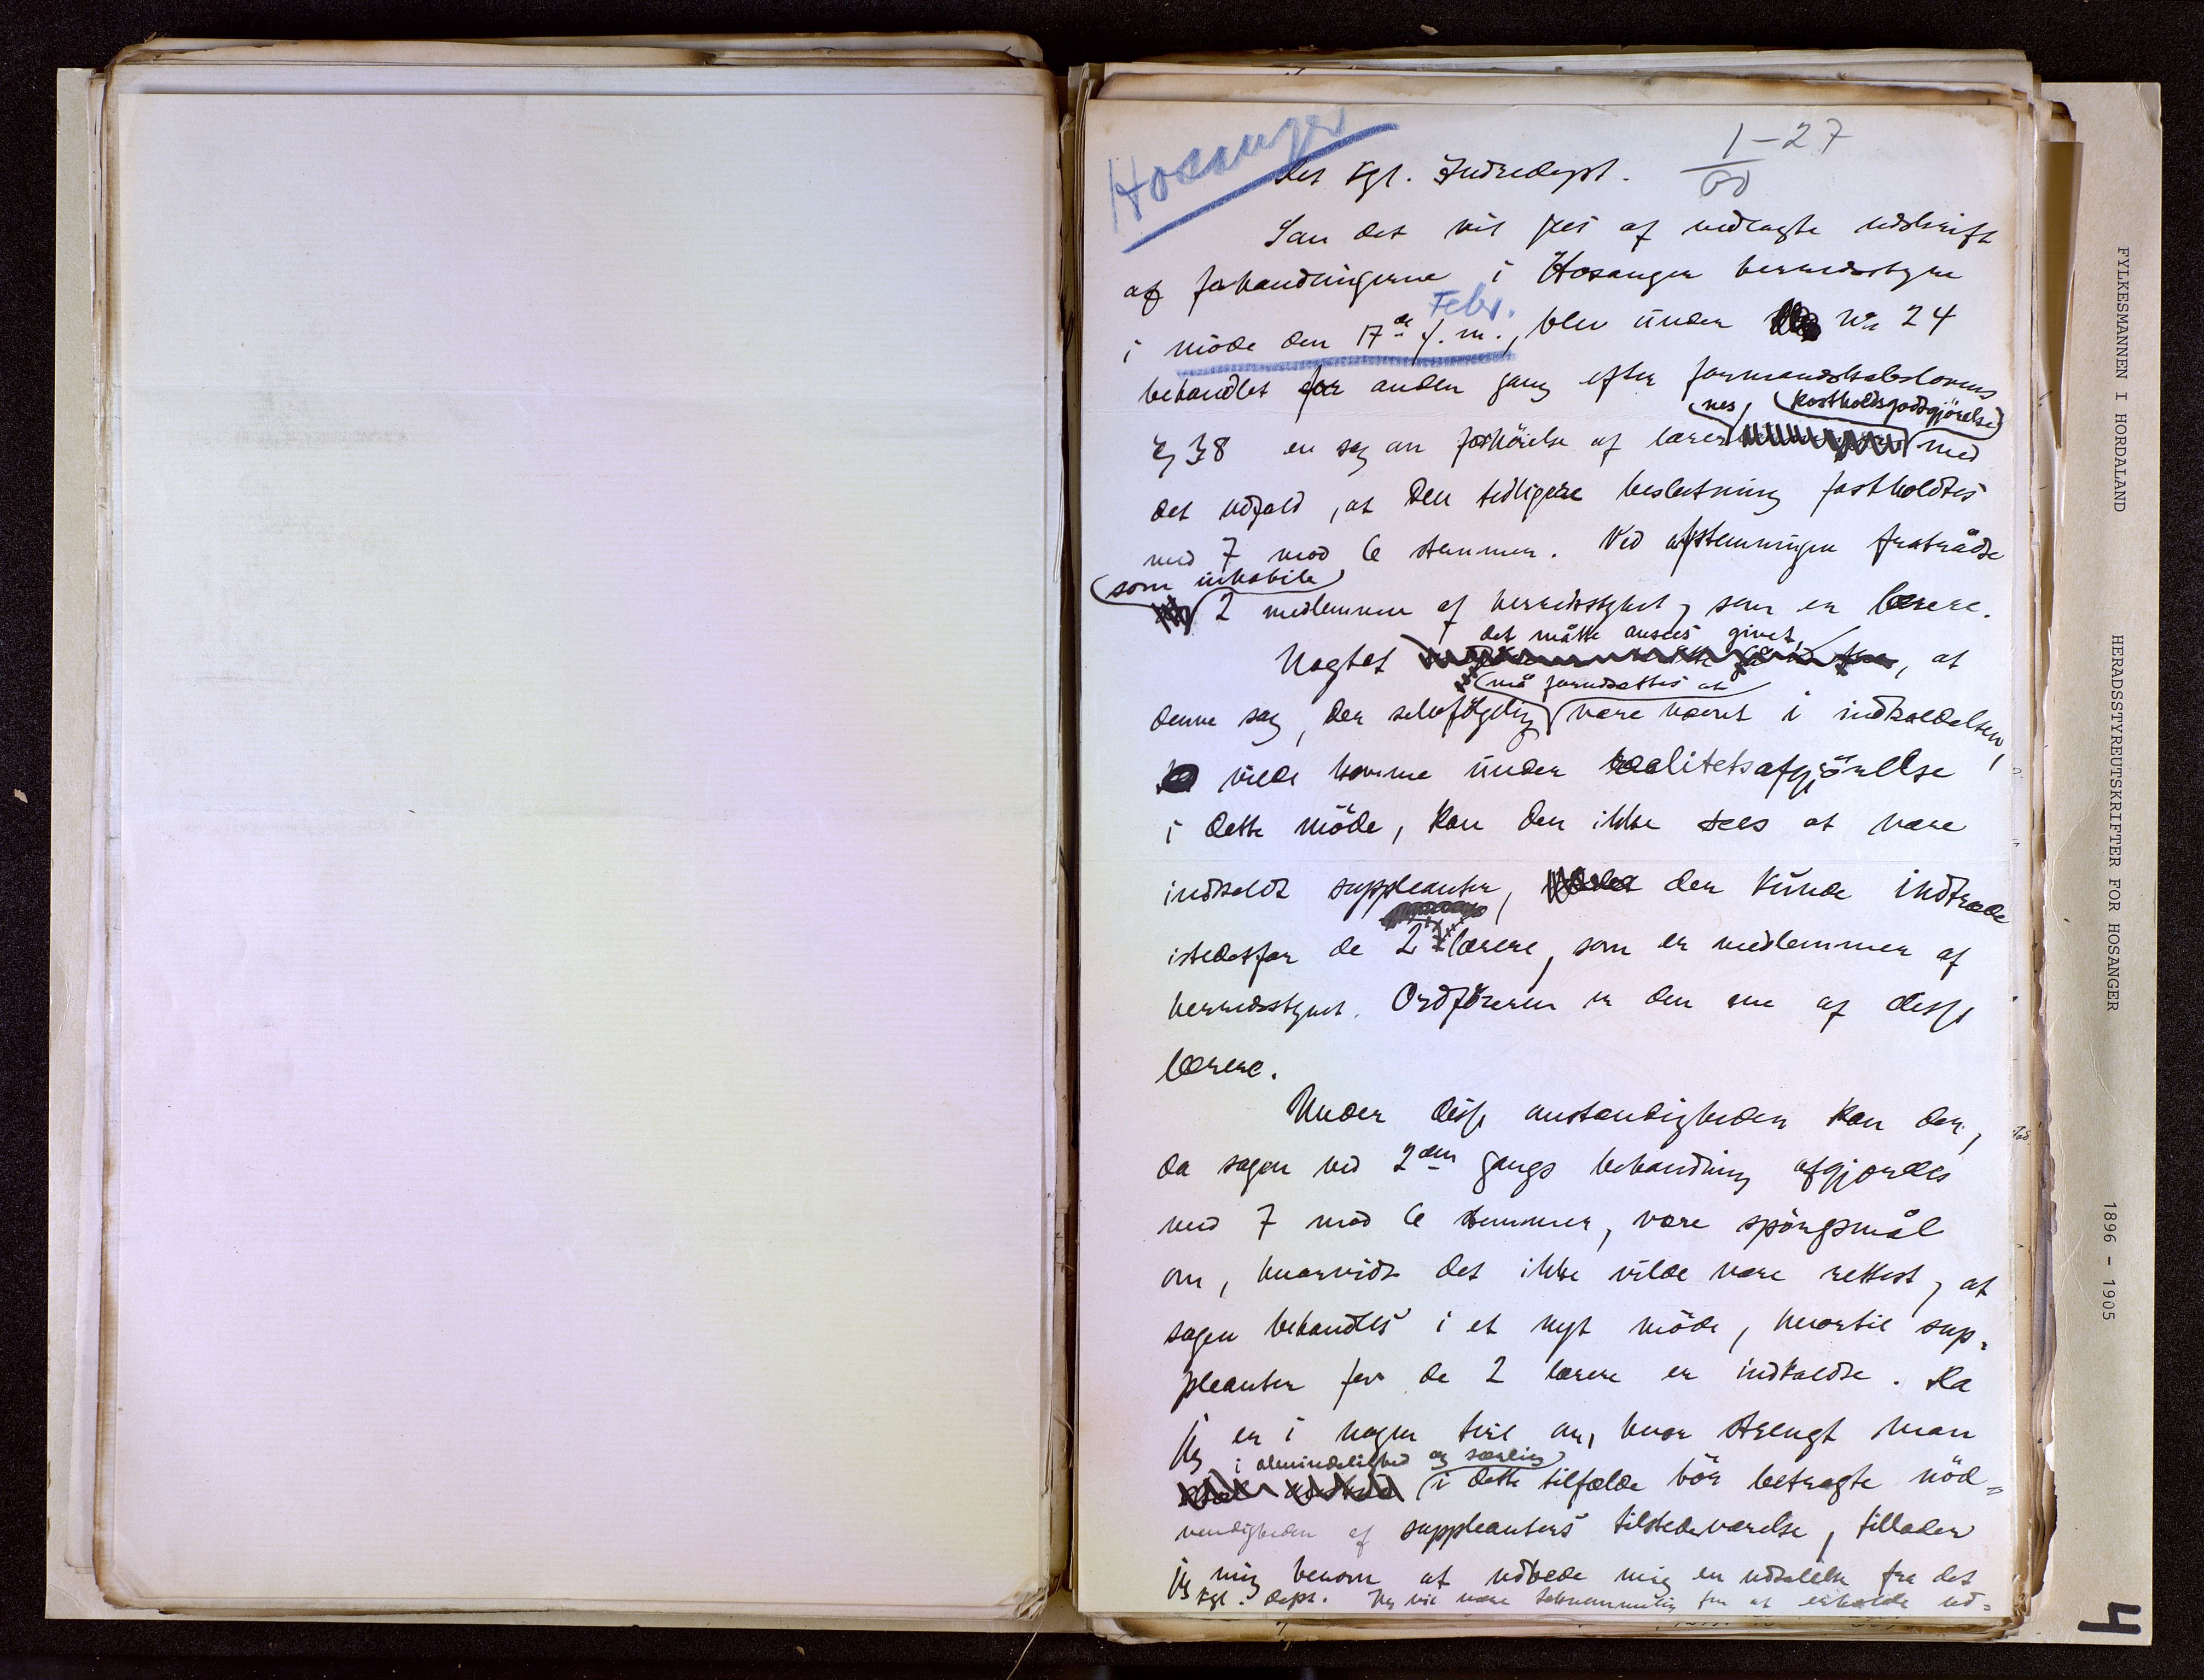 Hosanger
Det kgl. Indredept.
1-27
00
Som det vil sees af vedlagte udskrift
af forhandlingerne i Hosanger herredsstyre
Febr.
i möde den 17de f. m., blev under No 24
behandlet for anden gang efter formandskabslovens
nes kostholdsgodtgjörelse
§ 38 en sag om forhöielse af lærer med
det udfald, at den tidligere beslutning fastholdtes
med 7 mod 6 stemmer. Ved afstemningen fratrådte
som inhabile
2 medlemmer af herredsstyret, som er lærere.
det måtte ansees givet
Uagtet , at
må forudsættes at
denne sag, der selvfölgelig være nævnt i indkaldelsen,
vilde komme under realitetsafgjörelse
i dette möde, kan der ikke sees at være
indkaldt suppleanter, der kunde indtræde
istedetfor de 2 lærere, som er medlemmer af
herredsstyret. Ordföreren er den ene af disse
lærere.
Under disse omstændigheder kan der,
da sagen ved 2den gangs behandling afgjordes
med 7 mod 6 stemmer, være spörgsmål
om, hvorvidt det ikke vilde være rettest, at
sagen behandles i et nyt möde, hvortil sup-
pleanter for de 2 lærere er indkaldte. Da
jeg er i nogen tvil om, hvor strengt man
i almindelighed og særlig
i dette tilfælde bör betragte nöd-
vendigheden af suppleanters tilstedeværelse, tillader
jeg mig herom at udbede mig en udtalelse fra det
kgl. dept. Jeg vil være taknemmelig for at erholde ud-
FYLKESMANNEN I HORDALAND HERADSSTYREUTSKRIFTER FOR HOSANGER 1896 - 1905
4